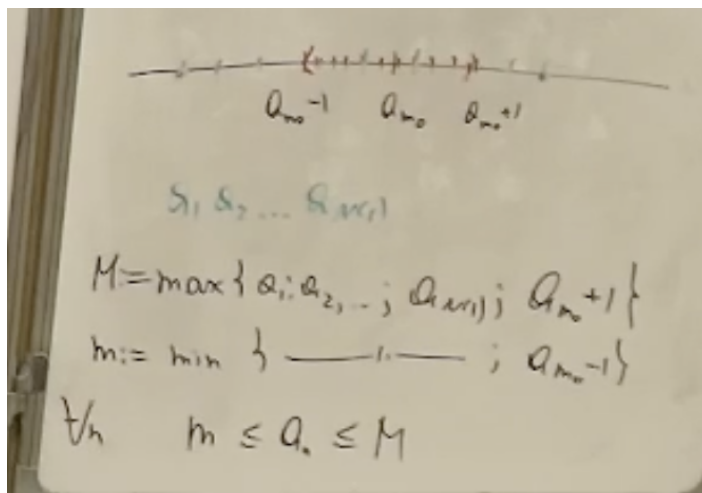 a_{m₀}-1 a_{m₀} a_{m₀}+1
a₁ a₂ ... a_{N(1)}
M:=max{a₁; a₂,..; a_{N(1)}; a_{m₀}+1}
m:= min { —〃— ; a_{m₀}-1}
∀n m ≤ aₙ ≤ M